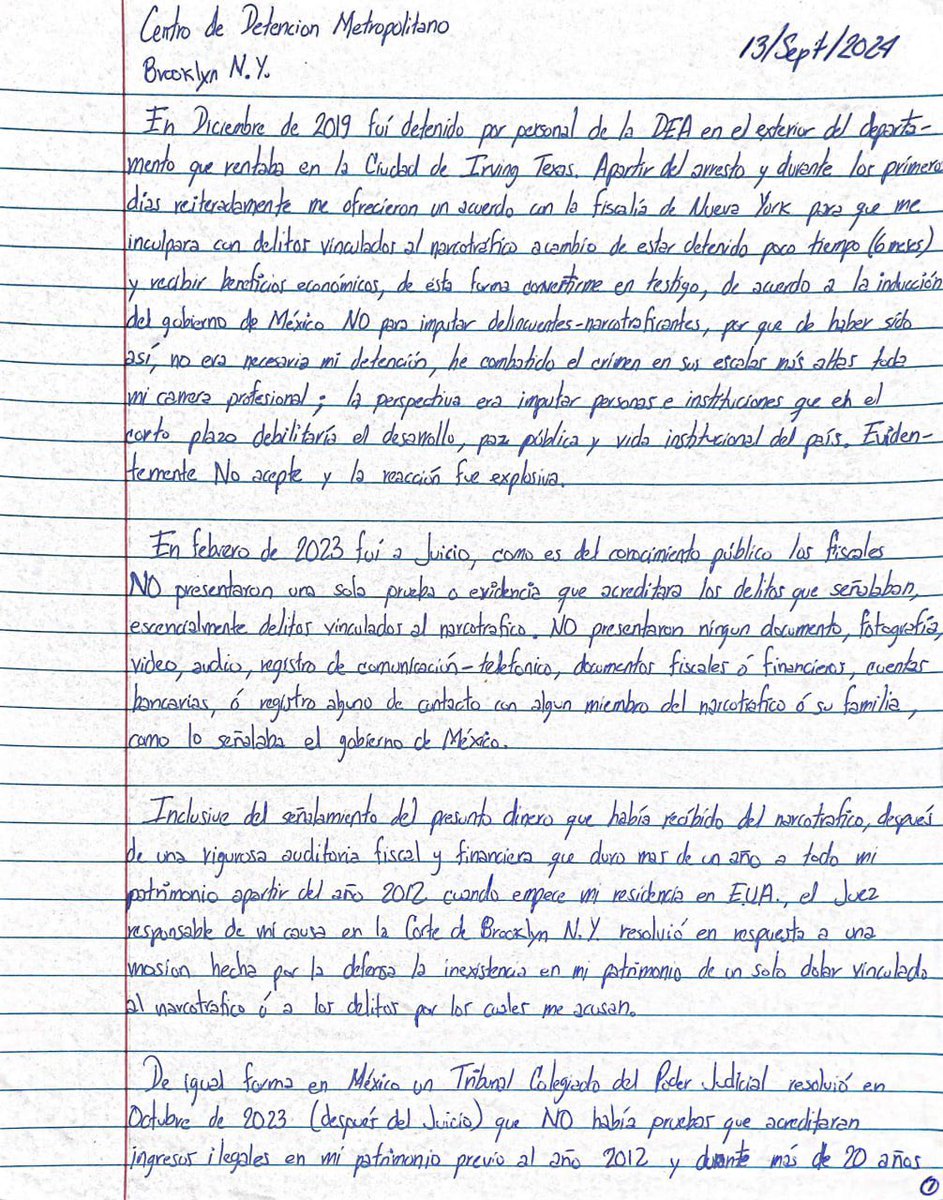 Centro de Detencion Metropolitano
13/Sept/2024
Brooklyn N.Y.
En Diciembre de 2019 fuí detenido por personal de la DEA en el exterior del departa-
mento que rentaba en la Ciudad de Irving Texas. Apartir del arresto y durante los primeros
días reiteradamente me ofrecieron un acuerdo con la fiscalía de Nueva York para que me
inculpara con delitos vinculados al narcotráfico acambio de estar detenido poco tiempo (6 meses)
y recibir beneficios económicos, de ésta forma convertirme en testigo, de acuerdo a la inducción
del gobierno de México NO para imputar delincuentes-narcotraficantes, por que de haber sido
así, no era necesaria mi detención, he combatido el crimen en sus escalas más altas toda
mi carrera profesional; la perspectiva era imputar personas e instituciones que en el
corto plazo debilitaría el desarrollo, paz pública y vida institucional del país. Eviden-
temente No acepte y la reacción fue explosiva.
En febrero de 2023 fuí a Juicio, como es del conocimiento público los fiscales
NO presentaron una sola prueba o evidencia que acreditara los delitos que señalaban,
escencialmente delitos vinculados al narcotrafico. NO presentaron ningun documento, fotografía,
video, audio, registro de comunicación-telefonico, documentos fiscales ó financieros, cuentas
bancarias, ó registro alguno de contacto con algun miembro del narcotrafico ó su familia,
como lo señalaba el gobierno de México.
Inclusive del señalamiento del presunto dinero que había recíbido del narcotrafico, después
de una rigurosa auditoria fiscal y financiera que duro mas de un año a todo mi
patrimonio apartir del año 2012 cuando empece mi residencia en E.U.A., el Juez
responsable de mi causa en la Corte de Brooklyn N.Y. resolvió en respuesta a una
mosion hecha por la defensa la inexistencia en mi patrimonio de un solo dolar vinculado
al narcotrafico ó a los delitos por los cuales me acusan.
De igual forma en México un Tribunal Colegiado del Poder Judicial resolvió en
Octubre de 2023 (después del Juicio) que NO había pruebas que acreditaran
ingresos ilegales en mi patrimonio previo al año 2012 y durante más de 20 años
1